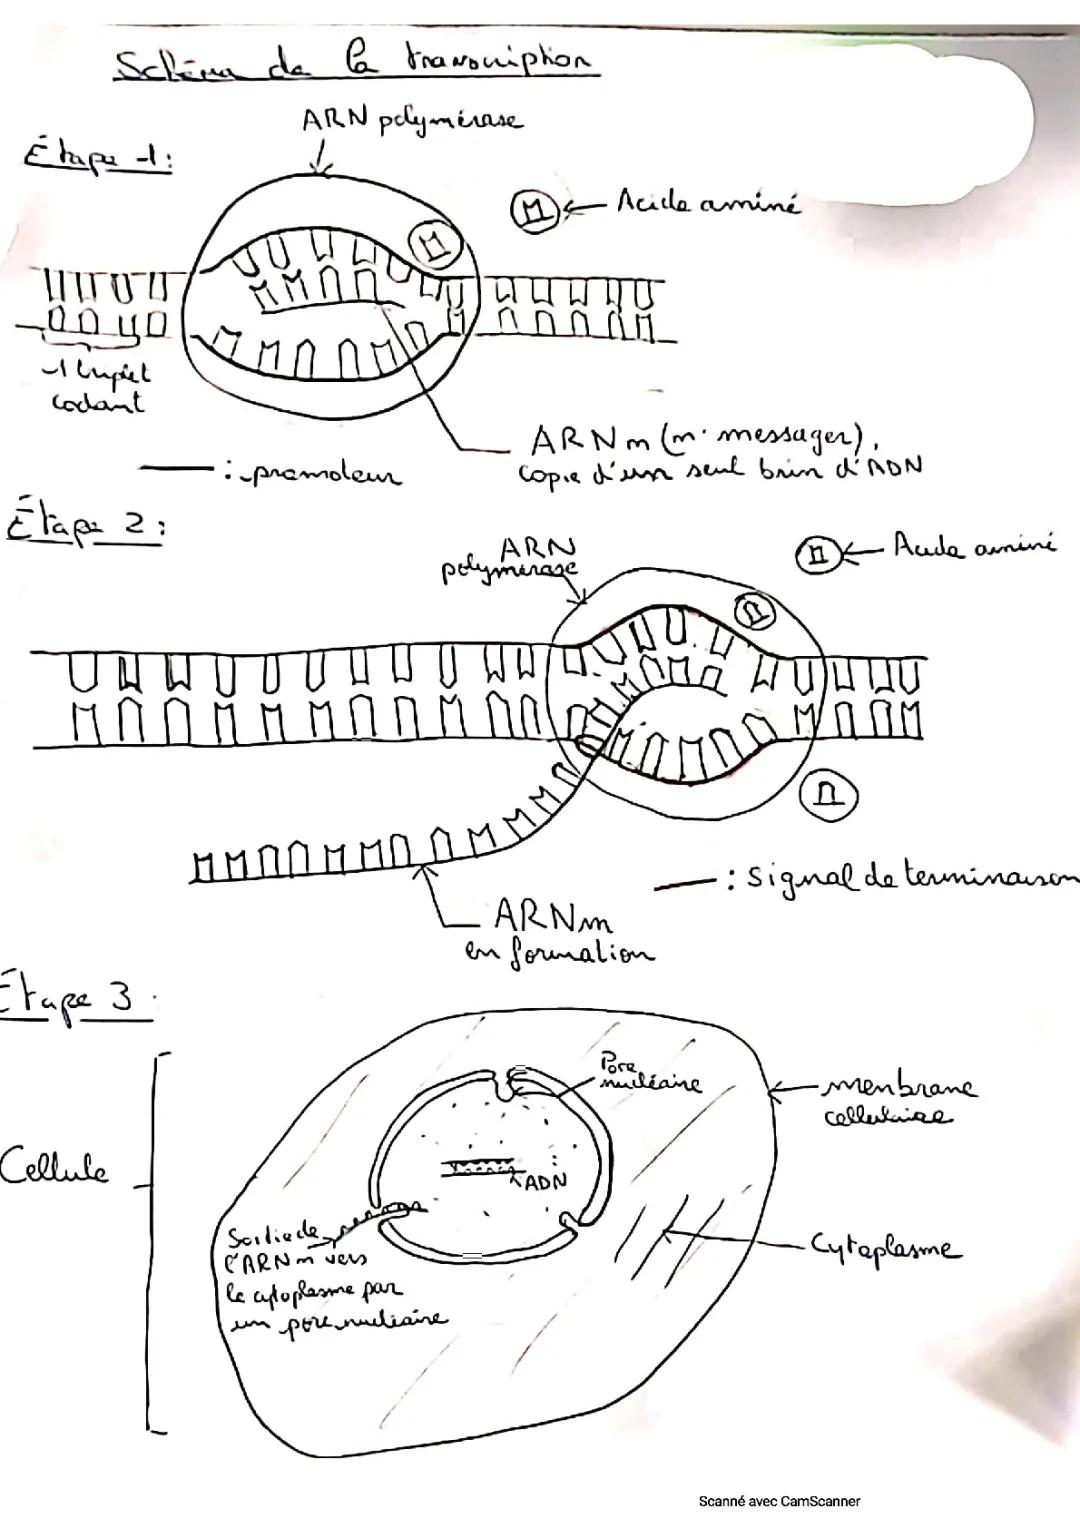 Schéma de la transcription
ARN polymérase
Étape 1:
Acide aminé
1 triplet
codant
ARNm (m: messager),
copie d'un seul brin d'ADN
— : promoteur
Étape 2 :
ARN
polymérase
Acide aminé
— : Signal de terminaison
ARNm
en formation
Étape 3 :
Pore
nucléaire
menbrane
cellulaire
Cellule
ADN
Sortie de
l'ARNm vers
le cytoplasme par
un pore nucléaire
Cytoplasme
Scanné avec CamScanner